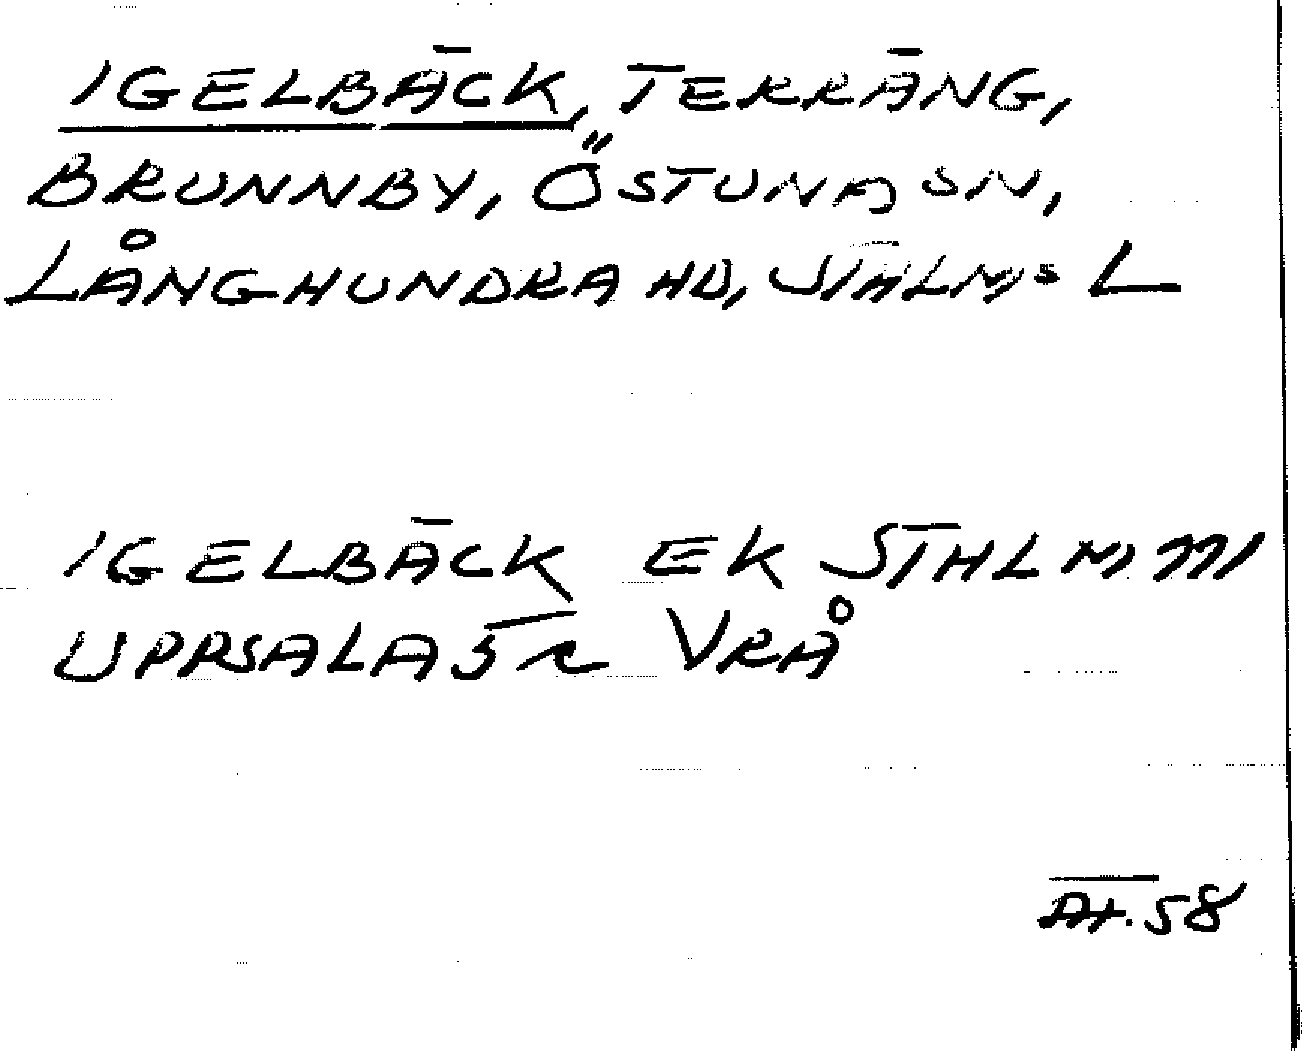 IGELBÄCK, TERRÄNG,
BRUNNBY, ÖSTUNA SN,
LÅNGHUNDRA HD, STHLMS L
IGELBÄCK EK STHLM
UPPSALA VRÅ
58